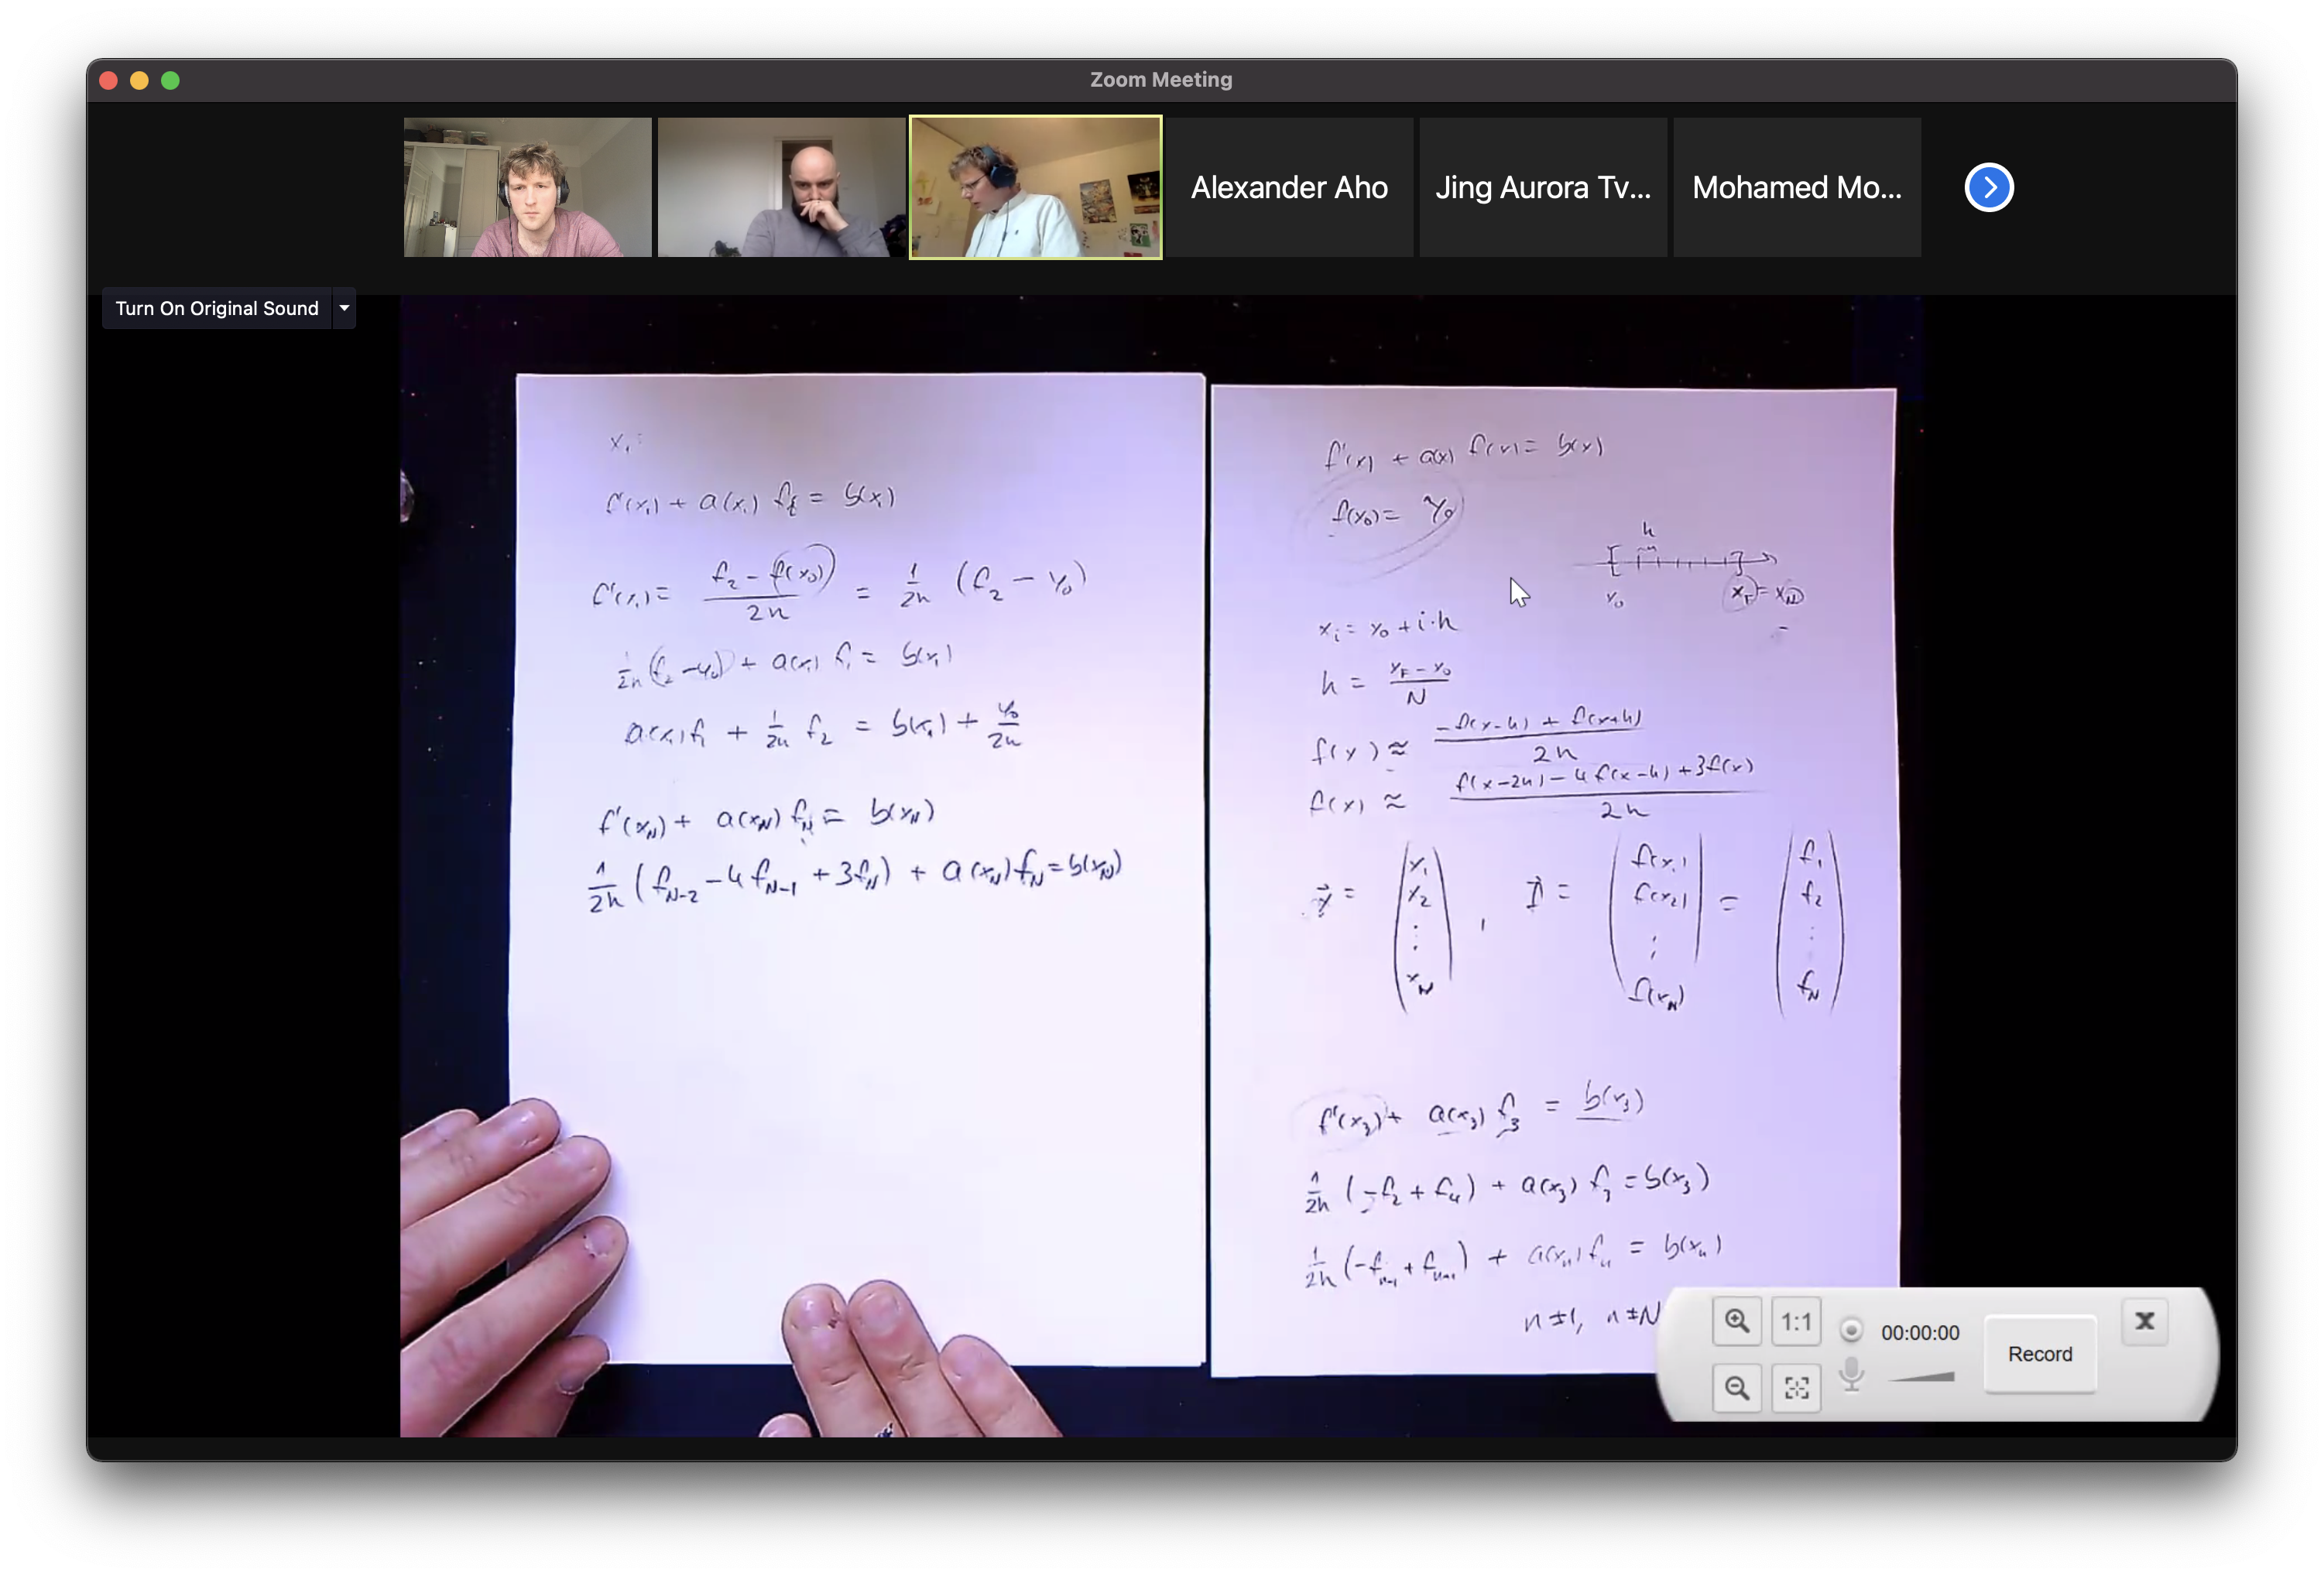 Zoom Meeting
Alexander Aho
Jing Aurora Tv...
Mohamed Mo...
Turn On Original Sound
x₁:
f'(x₁) + a(x₁) f₁ = b(x₁)
f'(x₁) = (f₂ - f(x₀))/2h = 1/2h (f₂ - y₀)
1/2h (f₂ - y₀) + a(x₁) f₁ = b(x₁)
a(x₁) f₁ + 1/2h f₂ = b(x₁) + y₀/2h
f'(x_N) + a(x_N) f_N = b(x_N)
1/2h (f_N-2 - 4 f_N-1 + 3f_N) + a(x_N) f_N = b(x_N)
f'(x) + a(x) f(x) = b(x)
f(x₀) = y₀
h
[ ]
x₀ x_F = x_N
x_i = x₀ + i·h
h = (x_F - x₀)/N
f(x) ≈ (-f(x-h) + f(x+h))/2h
f(x) ≈ (f(x-2h) - 4f(x-h) + 3f(x))/2h
x⃗ = (x₁ x₂ ⋮ x_N), f⃗ = (f(x₁) f(x₂) ⋮ f(x_N)) = (f₁ f₂ ⋮ f_N)
f'(x₃) + a(x₃) f₃ = b(x₃)
1/2h (-f₂ + f₄) + a(x₃) f₃ = b(x₃)
1/2h (-f_n-1 + f_n+1) + a(x_n) f_n = b(x_n)
n ≠ 1, n ≠ N
1:1
00:00:00
Record
X